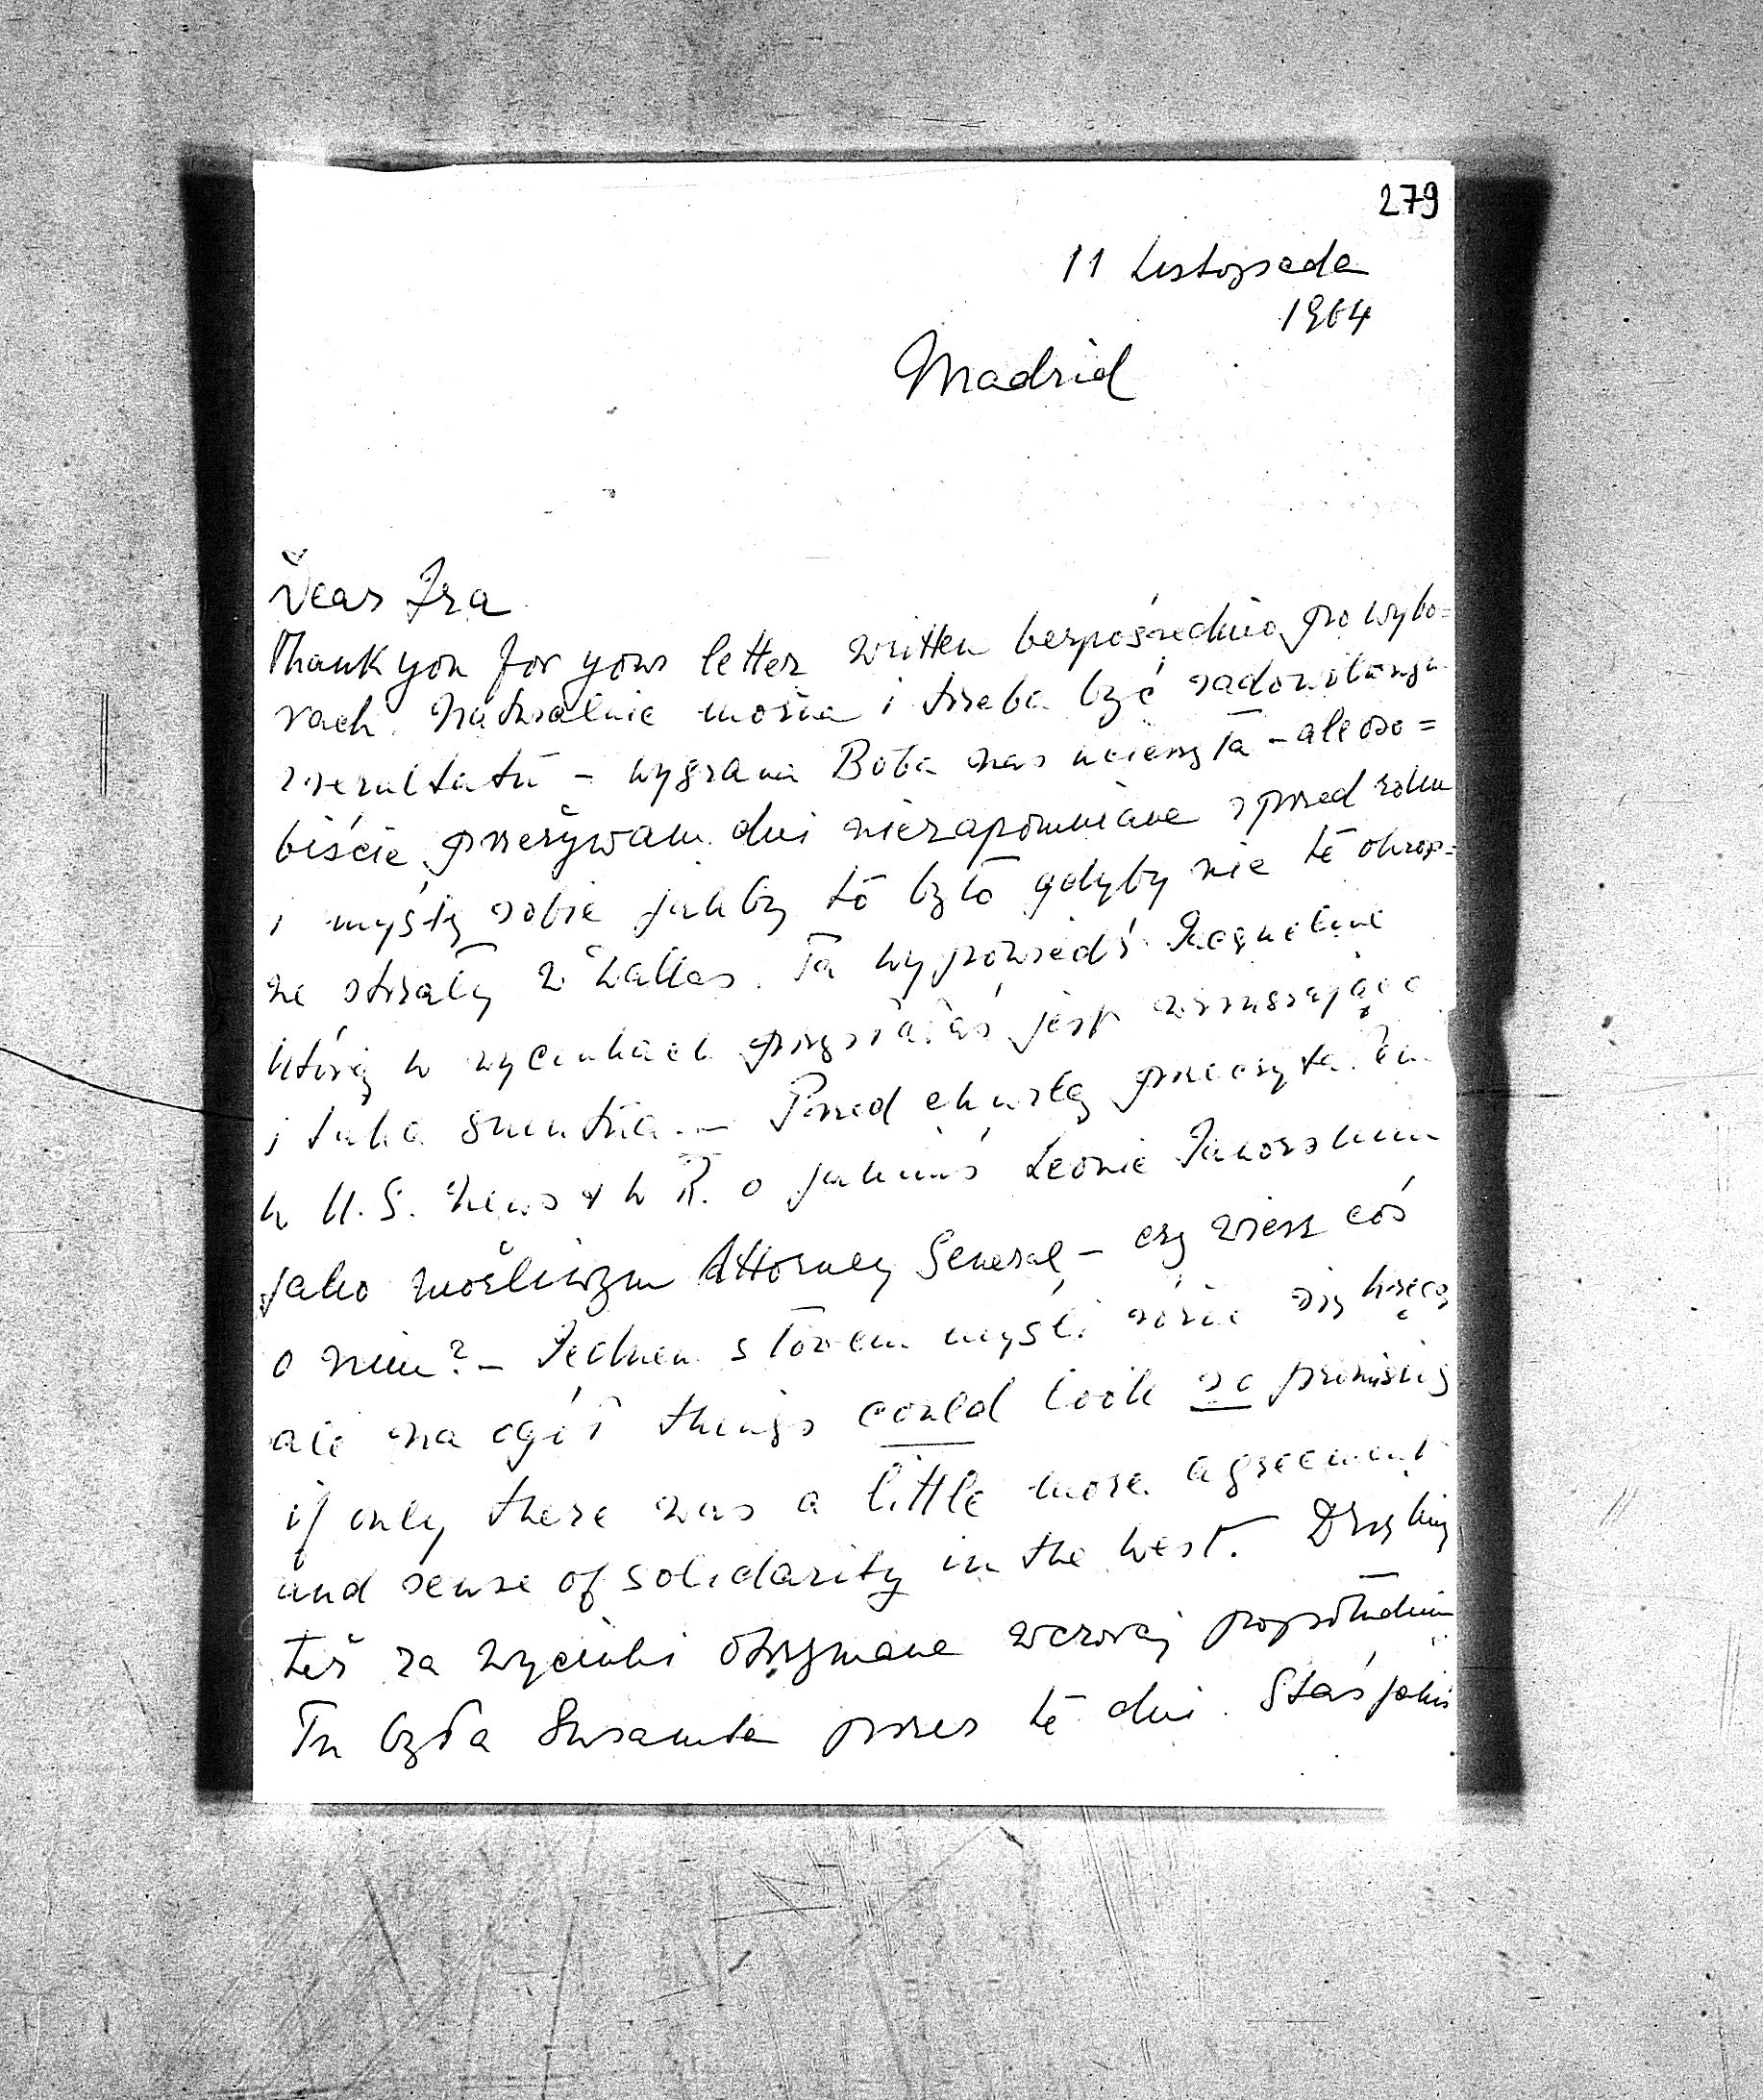 279
11 Listopada
1964
Madrid
Dear Ira
Thank you for your letter written bezpośrednio po wybo=
rach. Naturalnie można i trzeba być zadowolonym
z rezultatu – wygrana Boba nas ucieszyła – ale oso=
biście przeżywam dni niezapomniane z przed roku
i myślę sobie jakby to było gdyby nie te okrop=
ne strzały w Dallas. Ta wypowiedź Jacqueline
którą w wycinkach przysłałaś jest wzruszająca
i taka smutna. – Przed chwilą przeczytałem
w U.S. News & W R. o jakimś Leonie Jaworskim
jako możliwym Attorney General – czy wiesz coś
o nim? – Jednem słowem myśli różne się kręcą
ale na ogół things could look so promising
if only there was a little more agreement
and sense of solidarity in the West. Dziękuję
też za wycinki otrzymane wczoraj popołudniu
Tu była Suzanka przez te dni. Staś jakiś